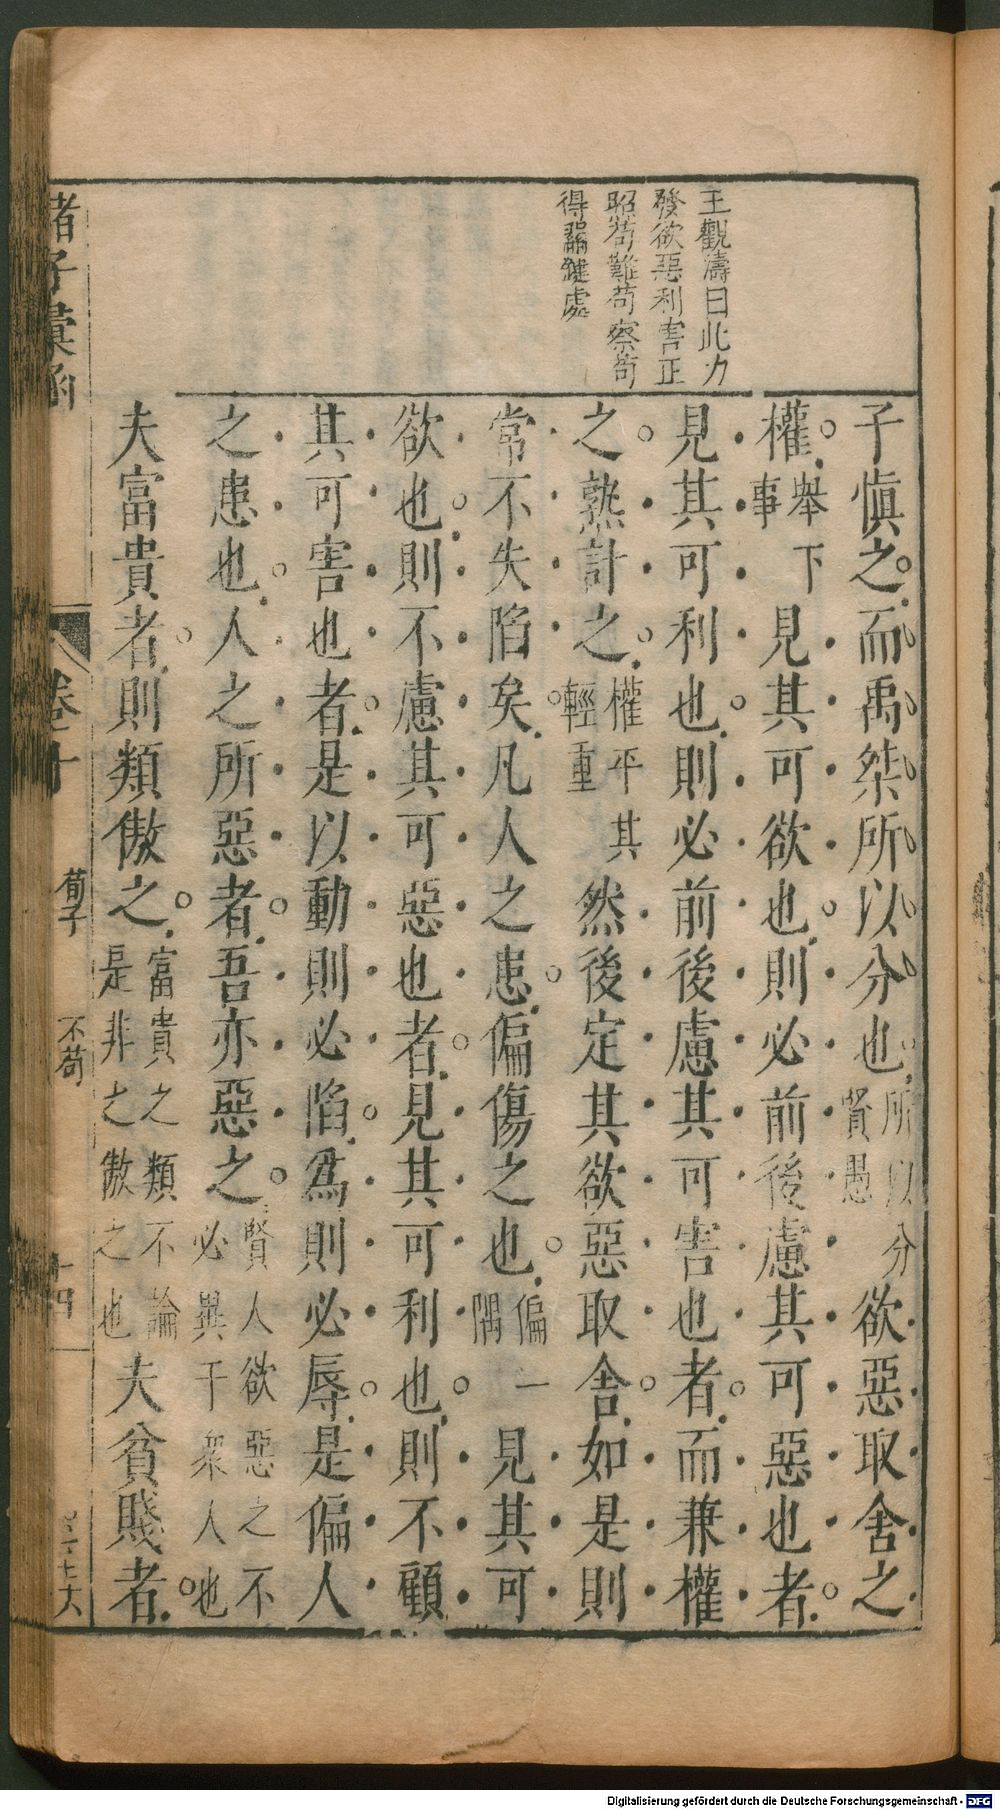 王觀濤曰此力
發欲惡利害正
昭苟難苟察苟
得關鍵處
子慎之而禹桀所以分也所以分賢愚欲惡取舍之
權舉下事見其可欲也則必前後慮其可惡也者
見其可利也則必前後慮其可害也者而兼權
之熟計之權平其輕重然後定其欲惡取舍如是則
常不失陷矣凡人之患偏傷之也偏一隅見其可
欲也則不慮其可惡也者見其可利也則不顧
其可害也者是以動則必陷為則必辱是偏人
之患也人之所惡者吾亦惡之賢人欲惡之不必異于衆人也
夫富貴者則類傲之富貴之類不論是非之傲之也夫貧賤者
諸子彙函
卷十
荀子
不苟
十四
Digitalisierung gefördert durch die Deutsche Forschungsgemeinschaft - DFG